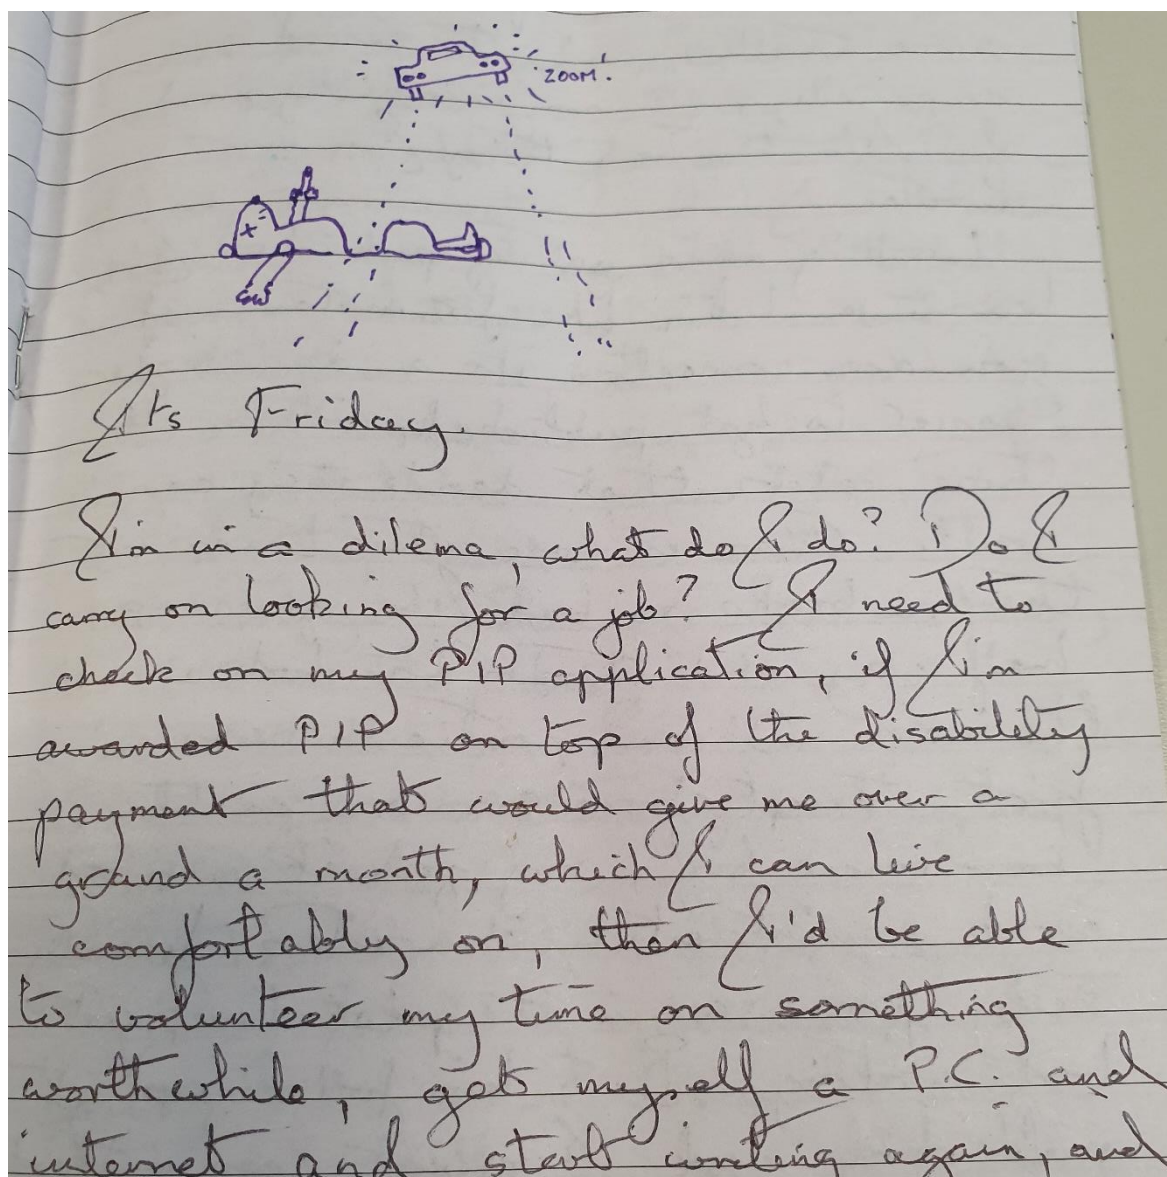 ZOOM!
Its Friday.
I'm in a dilema, what do I do? Do I
carry on looking for a job? I need to
check on my PIP application, if I'm
awarded PIP on top of the disability
payment that would give me over a
grand a month, which I can live
comfortably on, then I'd be able
to volunteer my time on something
worthwhile, get myself a P.C. and
internet and start writing again, and